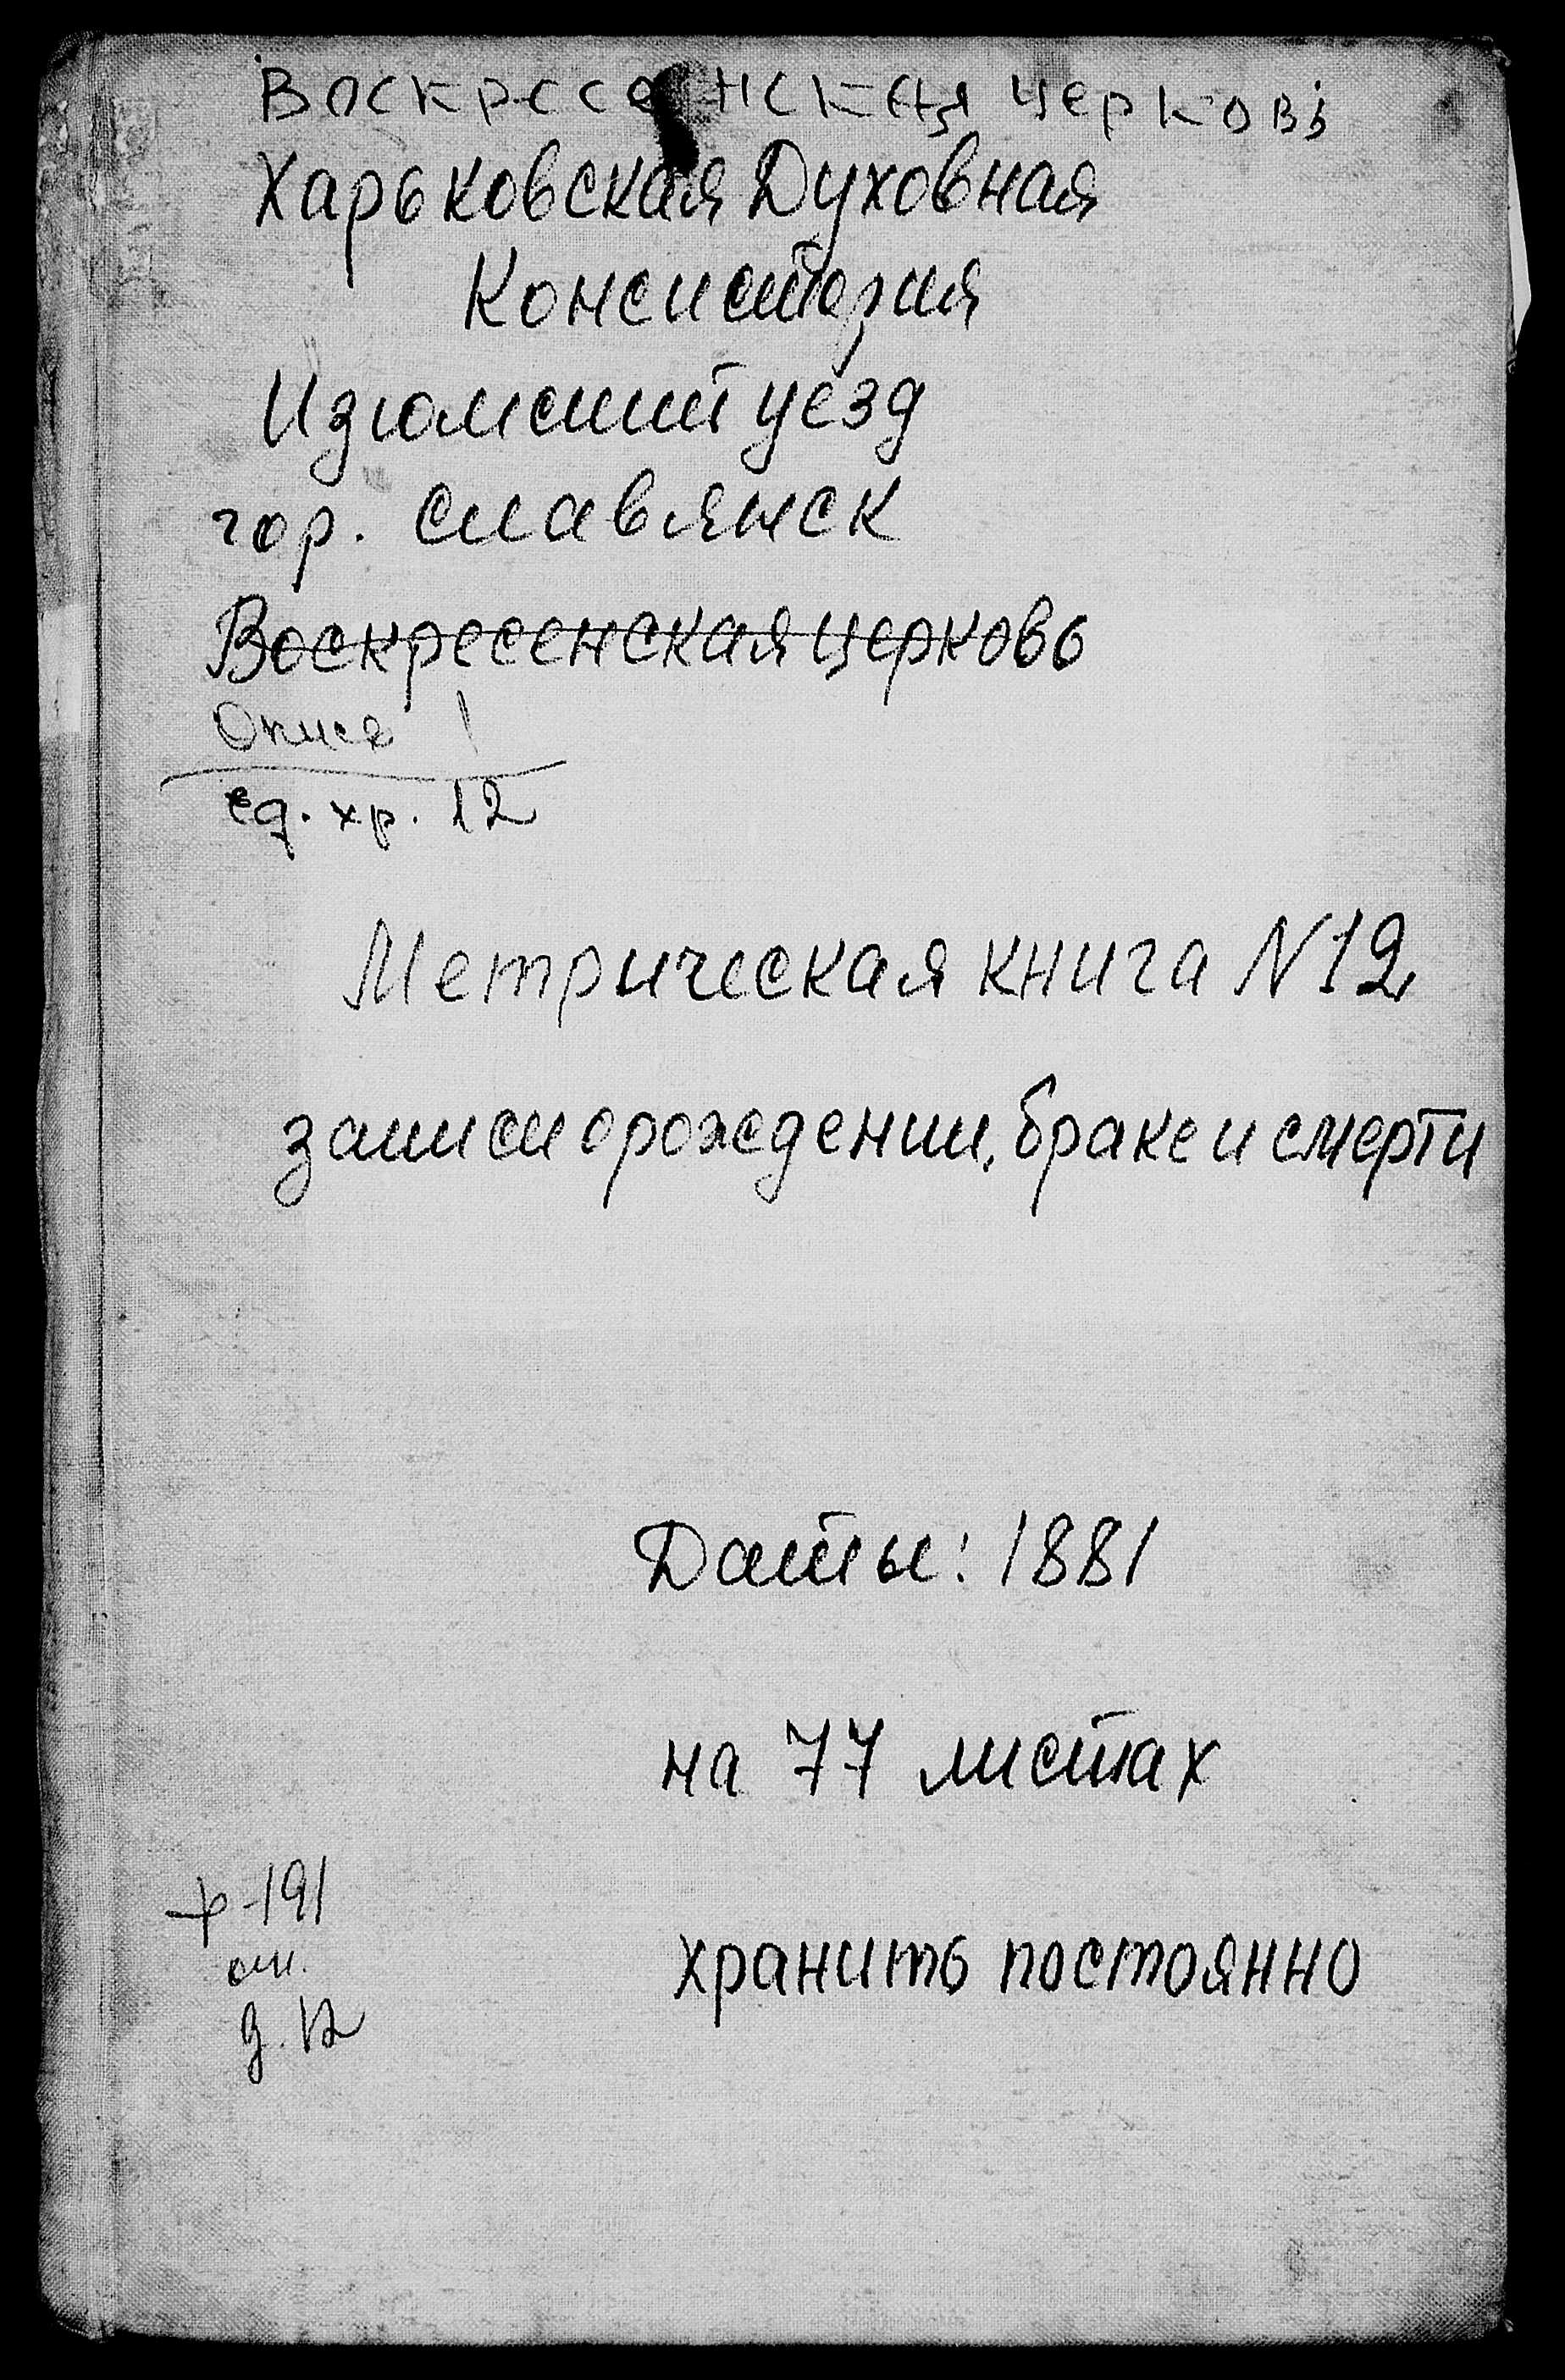 Воскресенская церковь
Харьковская Духовная
Консистория
Изюмский уезд
гор. Славянск
Воскресенская церковь
Опись 1
ед. хр. 12
Метрическая книга N 12
записи о рождении, браке и смерти
Даты: 1881
на 77 листах
ф-191
оп.
хранить постоянно
д. 12